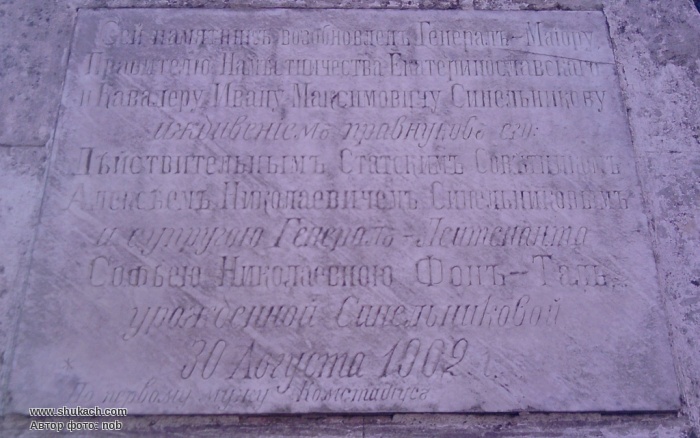 Сей памятникъ возобновленъ Генералъ-Маiору
Правителю Намѣстничества Екатеринославскаго
и Кавалеру Ивану Максимовичу Синельникову
иждивенiемъ правнуковъ его:
Дѣйствительнымъ Статскимъ Совѣтникомъ
Алексѣемъ Николаевичемъ Синельниковымъ
и супругою Генералъ-Лейтенанта
Софьею Николаевною Фонъ-Таль,
урожденной Синельниковой
30 Августа 1902 г.
По первому мужу
www.shukach.com
Автор фото: nob